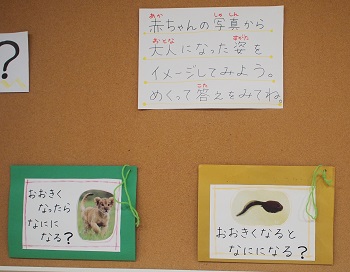 ?
赤ちゃんの写真から
大人になった姿を
イメージしてみよう。
めくって答えをみてね。
おおきく
なったら
なにに
なる?
おおきくなると
なにになる?